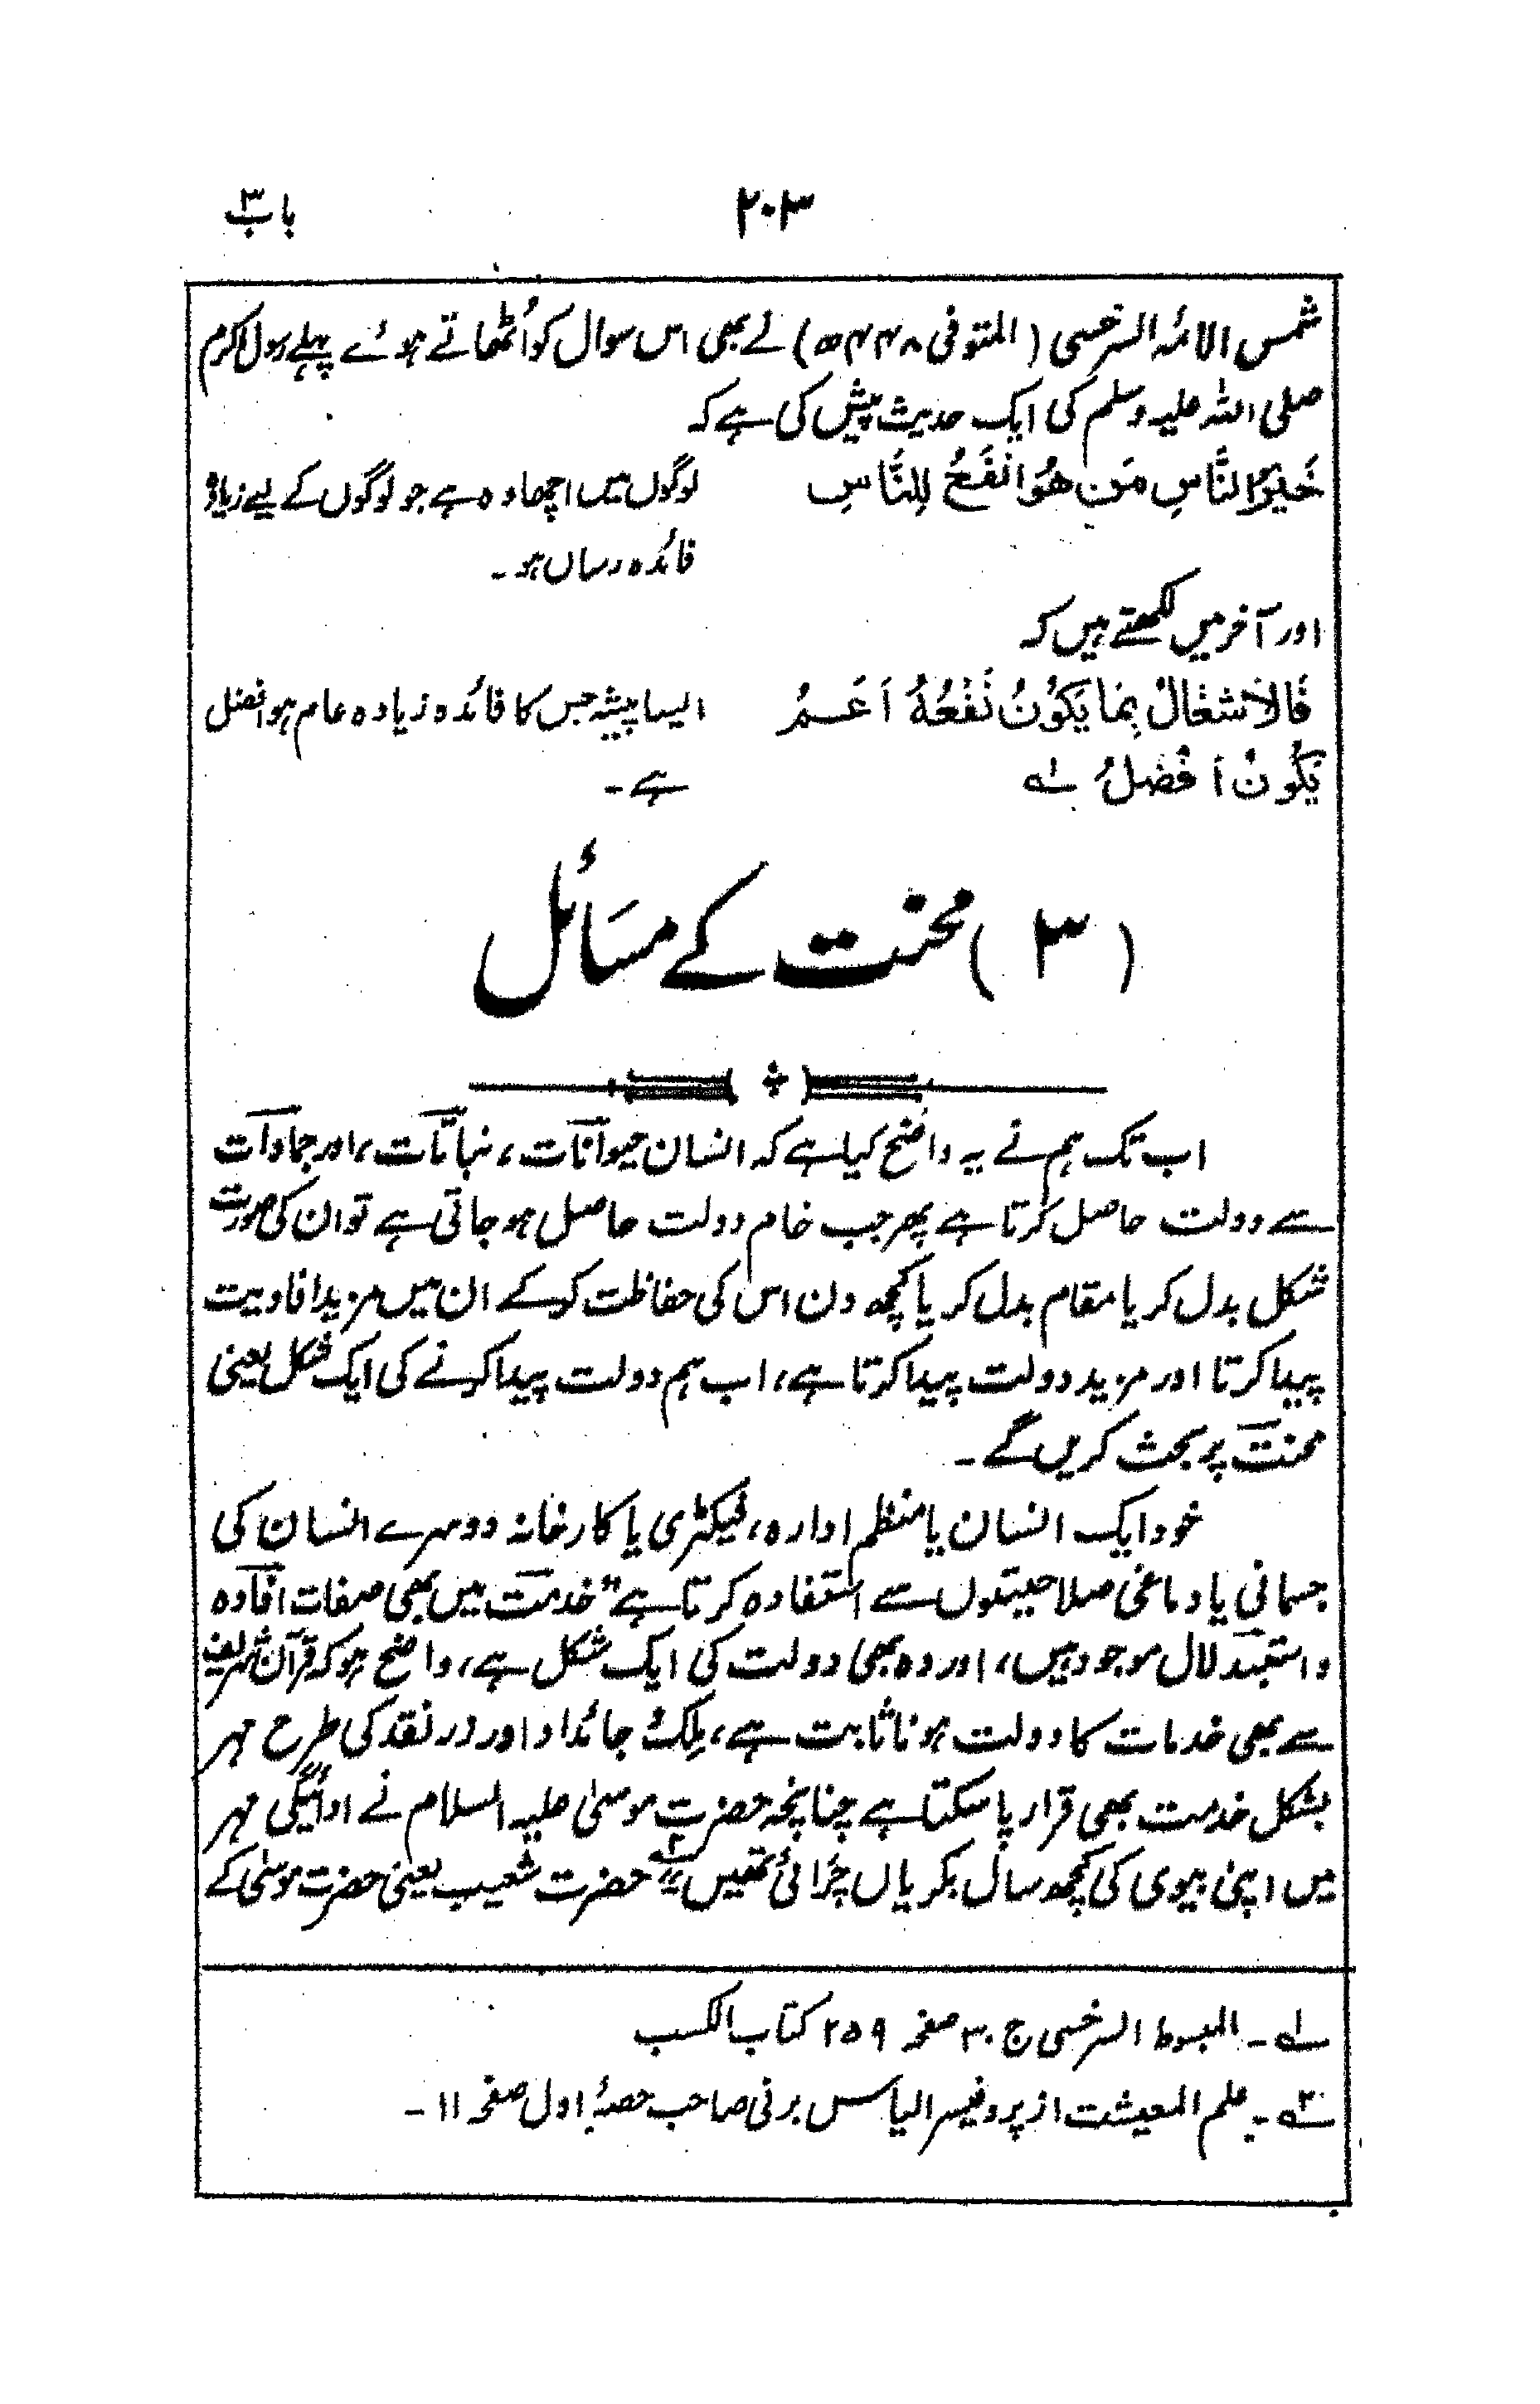 باب ۳
۲۰۳
شمس الائمہ السرخسی (المتوفی ۴۴۸ھ) نے بھی اس سوال کو اُٹھاتے ہوئے پہلے رسول اکرم
صلی اللہ علیہ وسلم کی ایک حدیث پیش کی ہے کہ
خَیْرُ النَّاسِ مَن هُوَ انْفَعُ لِلنَّاسِ
لوگوں میں اچھا وہ ہے جو لوگوں کے لیے زیادہ
فائدہ رساں ہو۔
اور آخر میں لکھتے ہیں کہ
فَالاَشغَالُ بِمَا یَکُوْنُ نَفْعُهٗ اَعَمُّ
یَکُوْنُ اَفْضَلُ لہ
ایسا پیشہ جس کا فائدہ زیادہ عام ہو افضل
ہے۔
(۳) محنت کے مسَائل
اب تک ہم نے یہ واضح کیا ہے کہ انسان حیوانات، نباتات، اور جمادات
سے دولت حاصل کرتا ہے پھر جب خام دولت حاصل ہو جاتی ہے تو ان کی صورت
شکل بدل کر یا مقام بدل کر یا کچھ دن اس کی حفاظت کر کے ان میں مزید افادیت
پیدا کرتا اور مزید دولت پیدا کرتا ہے، اب ہم دولت پیدا کرنے کی ایک شکل یعنی
محنت پر بحث کریں گے۔
خود ایک انسان یا منظم ادارہ، فیکٹری یا کارخانہ دوسرے انسان کی
جسمانی یا دماغی صلاحیتوں سے استفادہ کرتا ہے "خدمت میں بھی صفات افادہ
و استبدلال موجود ہیں، اور وہ بھی دولت کی ایک شکل ہے، واضح ہو کہ قرآن شریف
سے بھی خدمات کا دولت ہونا ثابت ہے، مِلک جائداد اور زر نقد کی طرح مہر
بشکل خدمت بھی قرار پا سکتا ہے چنانچہ حضرت موسیٰ علیہ السلام نے ادائیگی مہر
میں اپنی بیوی کی کچھ سال بکریاں چَرائی تھیں" ۲ہ حضرت شعیب یعنی حضرت موسیٰ کے
لہ۔ المبسوط السرخسی ج ۳۰ صفحہ ۲۵۹ کتاب الکسب
۲ہ۔ علم المعیشت از پروفیسر الیاس برنی صاحب حصۂ اول صفحہ ۱۱۔